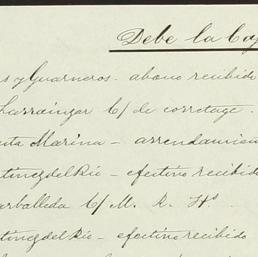 Debe la Ca
s y Guarneros - abono recibido
Larrainzar C/ de corretage
ta Marina - arrendamien
tinez del Rio - efectivo recibido
arballeda C/ M. R. Hs
tinez del Rio - efectivo recibido